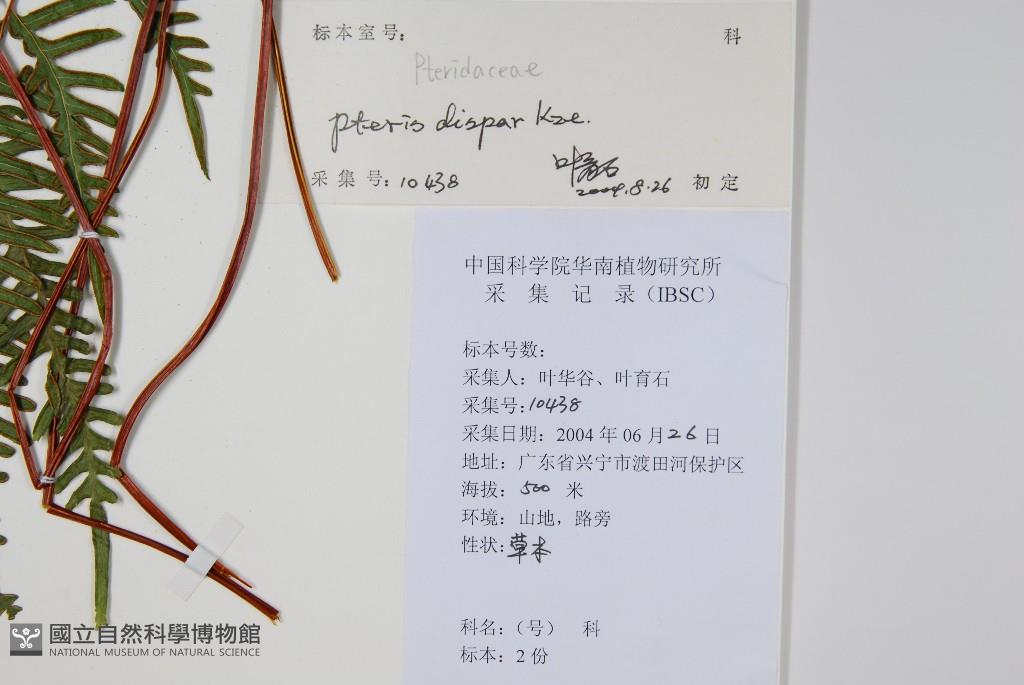 标本室号： 科
Pteridaceae
Pteris dispar Kze.
采集号：10438
叶育石
2004.8.26 初定
中国科学院华南植物研究所
采 集 记 录（IBSC）
标本号数：
采集人：叶华谷、叶育石
采集号：10438
采集日期：2004 年 06 月 26 日
地址：广东省兴宁市渡田河保护区
海拔：500 米
环境：山地，路旁
性状：草本
科名：（号） 科
标本：2 份
國立自然科學博物館
NATIONAL MUSEUM OF NATURAL SCIENCE